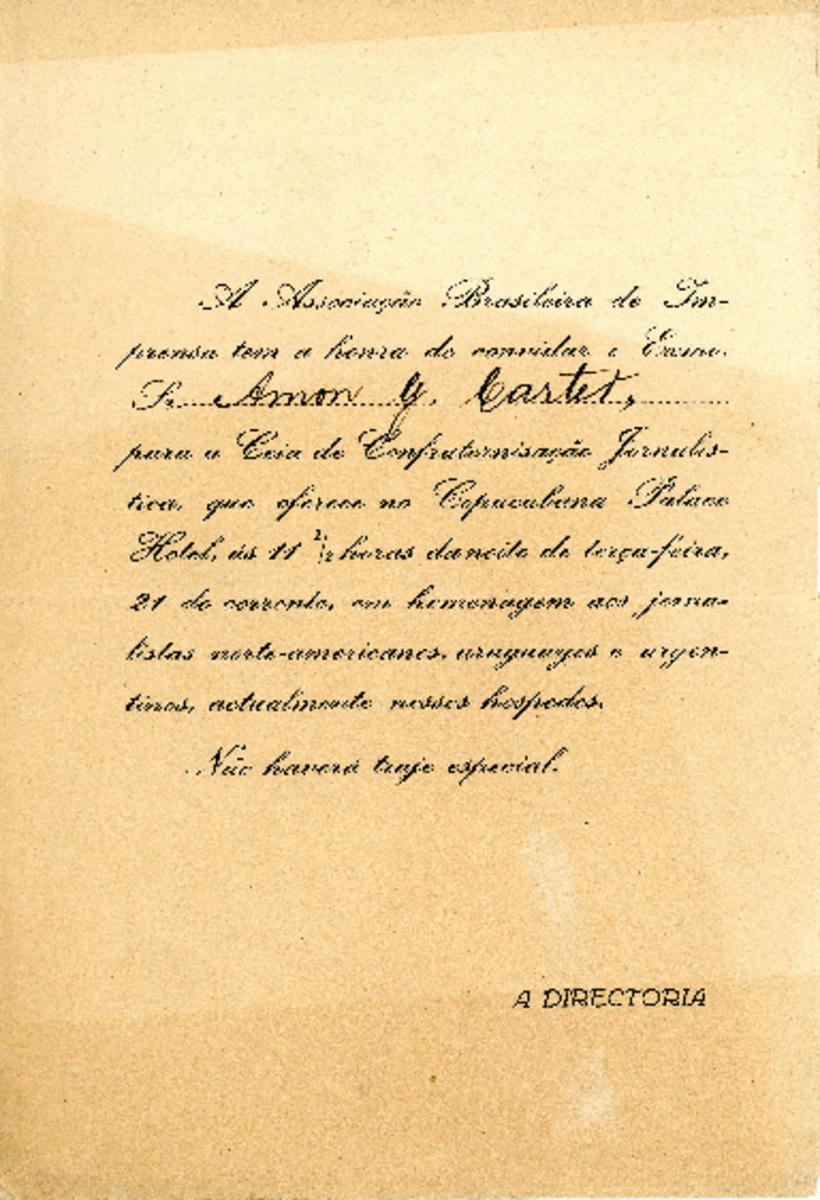 A Associação Brasileira de Im-
prensa tem a honra de convidar o Exmo.
Sr. Amon G. Carter,
para a Ceia de Confraternisação Jornalis-
tica, que oferece no Copacabana Palace
Hotel, ás 11 ½ horas da noite de terça-feira,
21 do corrente, em homenagem aos jorna-
listas norte-americanos, uruguayos e argen-
tinos, actualmente nossos hospedes.
Não haverá traje especial.
A DIRECTORIA